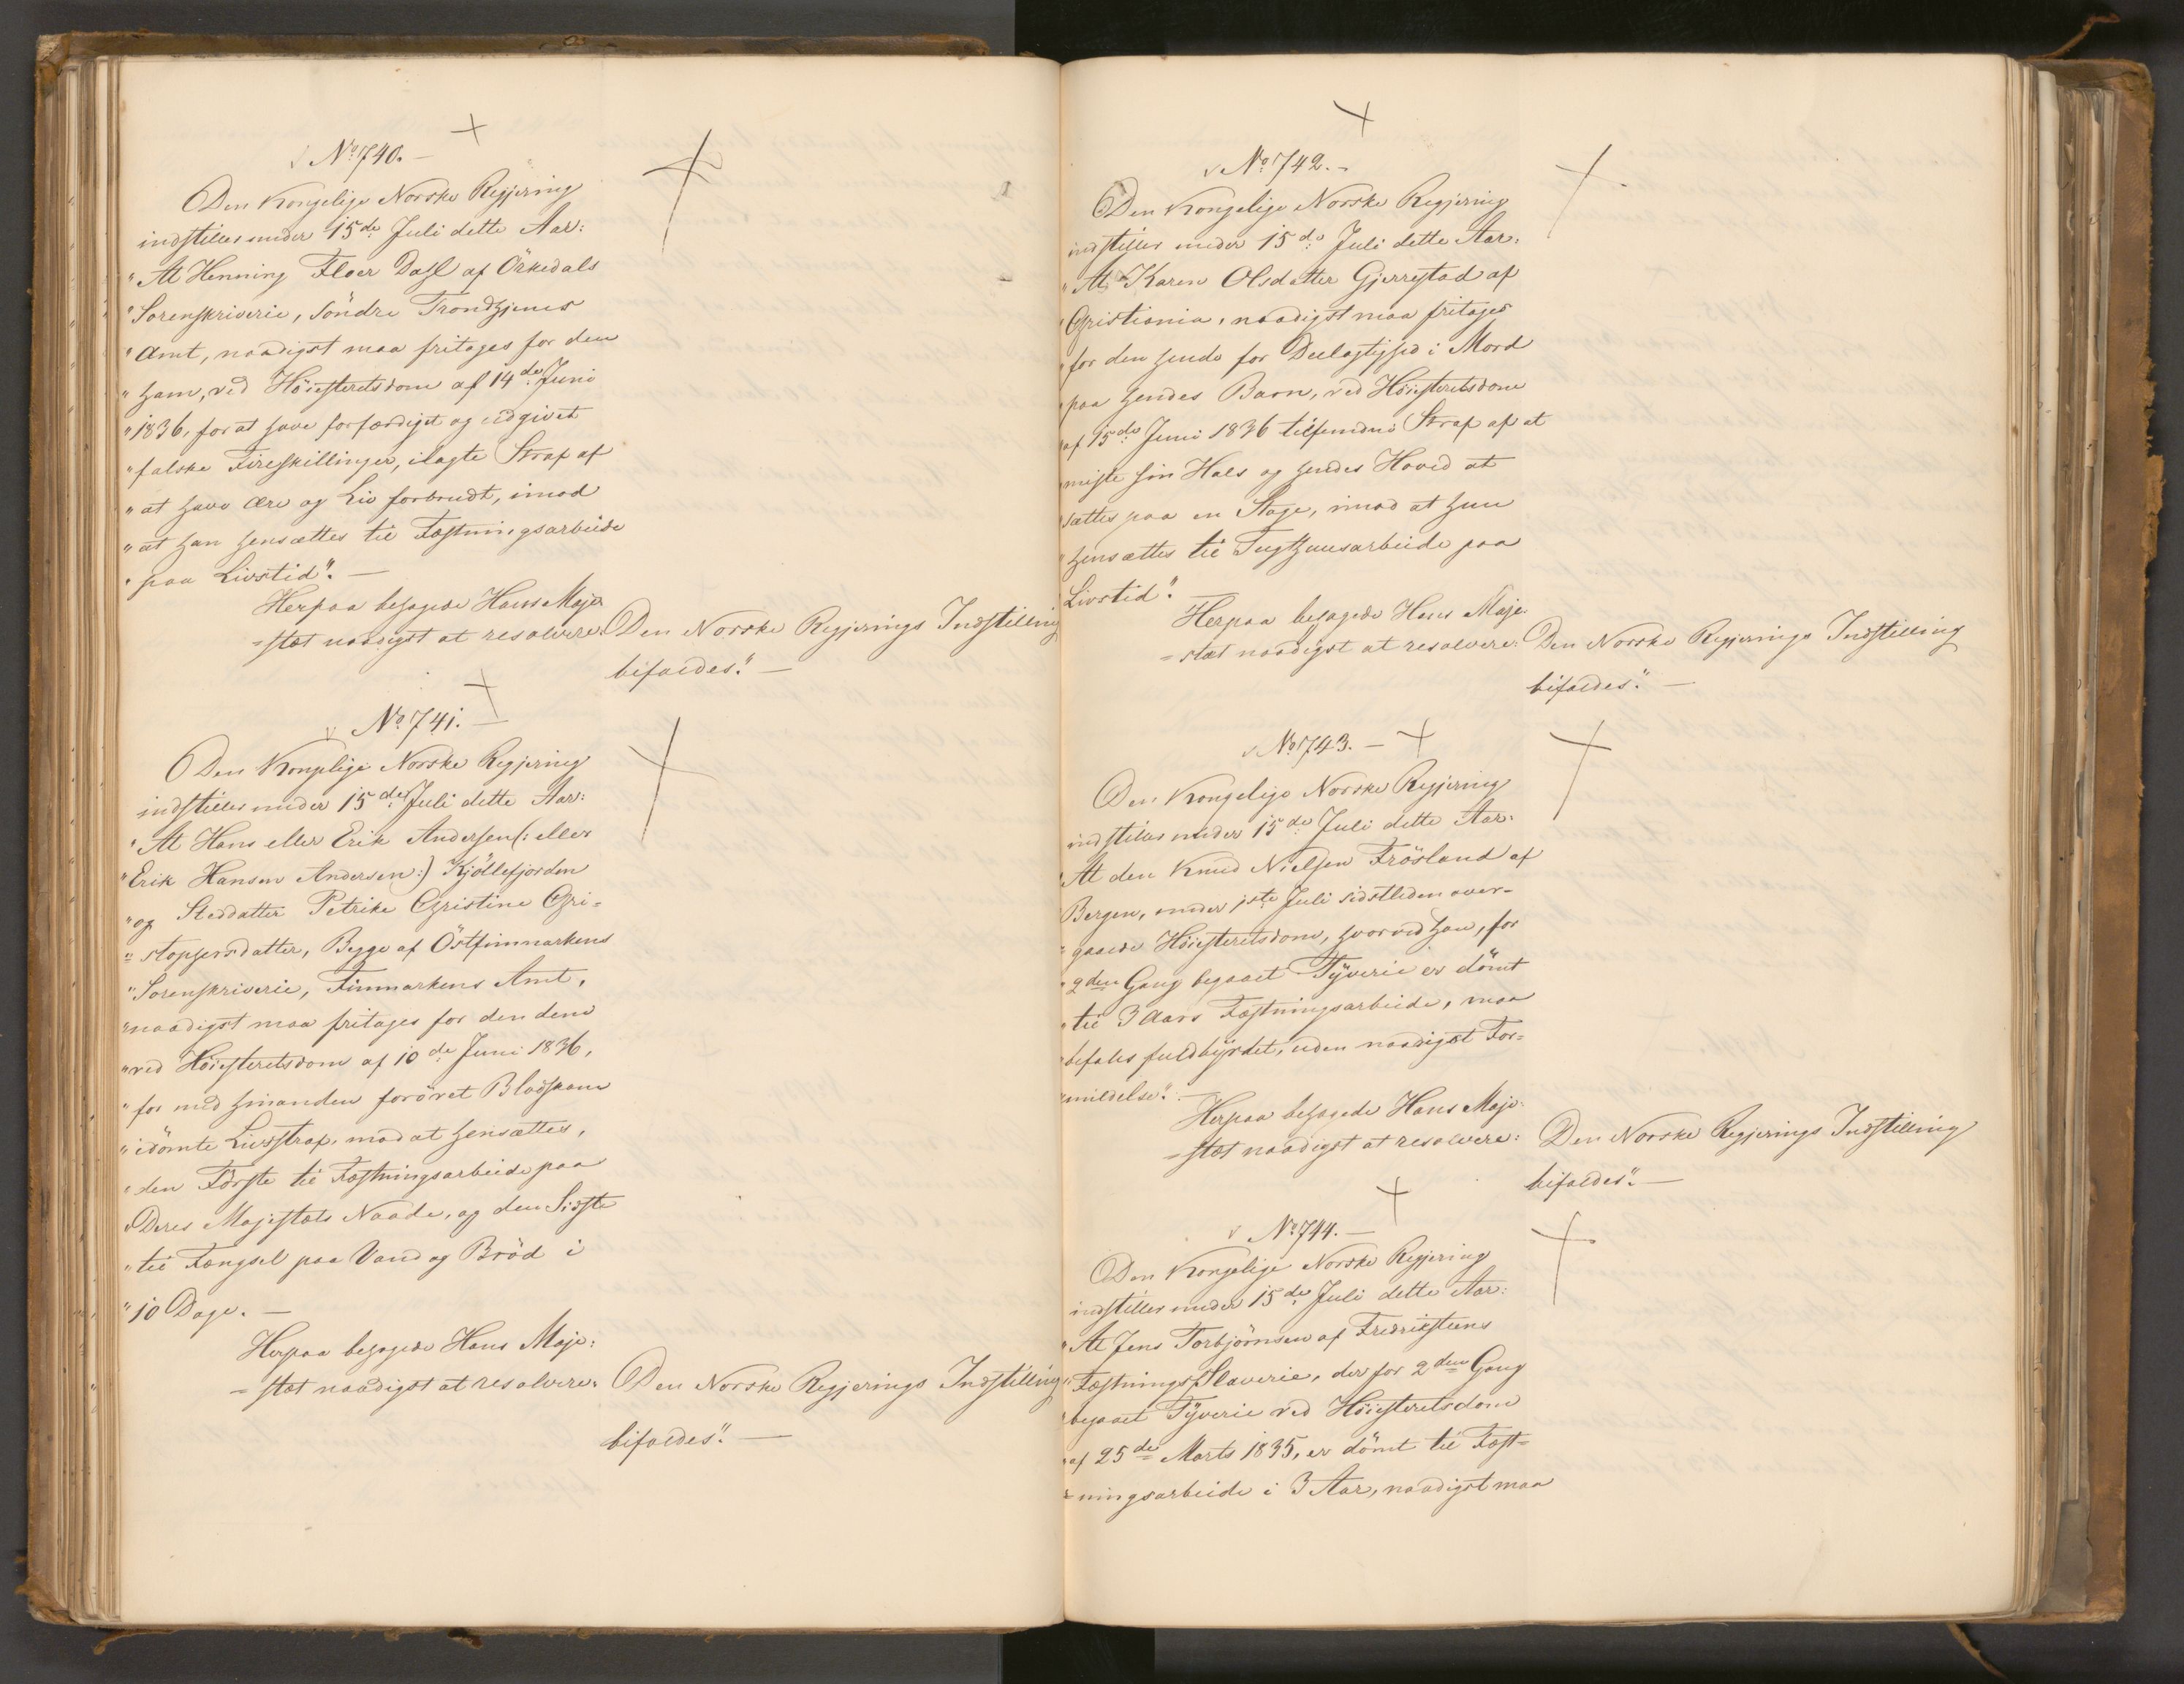 No 740. —
Den Kongelige Norske Regjering
indstiller under 15de Juli dette Aar:
"At Henning Floer Dahl af Örkedals
"Sorenskriverie, Söndre Trondhjems
"Amt, naadigst maa fritages for den
"ham, ved Höiesteretsdom af 14de Juni
"1836, for at have forfærdiget og udgivet
"falske Fireskillinger, ilagte Straf af
"at have Ære og Liv forbrudt, imod
"at han hensættes til Fæstningsarbeide
"paa Livstid". —
Herpaa behagede Hans Maje-
=stæt naadigst at resolvere: Den Norske Regjerings Indstilling
bifaldes". —
No 741. —
Den Kongelige Norske Regjering
indstiller under 15de Juli dette Aar:
"At Hans eller Erik Andersen (: eller
"Erik Hansen Andersen:) Kjöllefjorden
"og Steddatter Petrike Christine Chri=
"=stophersdatter, Begge af Östfinmarkens
"Sorenskriverie, Finmarkens Amt,
"naadigst maa fritages for den dem
"ved Höiesteretsdom af 10de Juni 1836,
"for med hinanden forövet Blodskam
"idömte Livsstraf, mod at hensættes,
"den Förste til Fæstningsarbeide paa
"Deres Majestæts Naade, og den Sidste
"til Fængsel paa Vand og Bröd i
"10 Dage. —
Herpaa behagede Hans Maje:
=stæt naadigst at resolvere: Den Norske Regjerings Indstilling
bifaldes". —
No 742. —
Den Kongelige Norske Regjering
indstiller under 15de Juli dette Aar:
"At Karen Olsdatter Gjerrestad af
"Christiania, naadigst maa fritages
"for den hende for Deelagtighed i Mord
"paa hendes Barn, ved Höiesteretsdom
"af 15de Juni 1836 tilfundne Straf af at
"miste sin Hals og hendes Hoved at
"sættes paa en Stage, imod at hun
"hensættes til Tugthuusarbeide paa
Livstid". —
Herpaa behagede Hans Maje:
=stæt naadigst at resolvere: Den Norske Regjerings Indstilling
bifaldes". —
No 743. —
Den Kongelige Norske Regjering
indstiller under 15de Juli dette Aar:
"At den Knud Nielsen Frösland af
Bergen, under 1ste Juli sidstleden over-
"gaaede Höiesteretsdom, hvorved han, for
"2den Gang begaaet Tÿverie er dömt
"til 3 Aars Fæstningsarbeide, maa
"befales fuldbÿrdet, uden naadigst For=
"mildelse". —
Herpaa behagede Hans Maje:
=stæt naadigst at resolvere: Den Norske Regjerings Indstilling
bifaldes". —
No 744. —
Den Kongelige Norske Regjering
indstiller under 15de Juli dette Aar:
"At Jens Torbjörnsen af Fredriksteens
"Fæstnings Slaverie, der for 2den Gang
"begaaet Tÿverie ved Höiesteretsdom
"af 25de Marts 1835, er dömt til Fæst=
=ningsarbeide i 3 Aar, naadigst maa